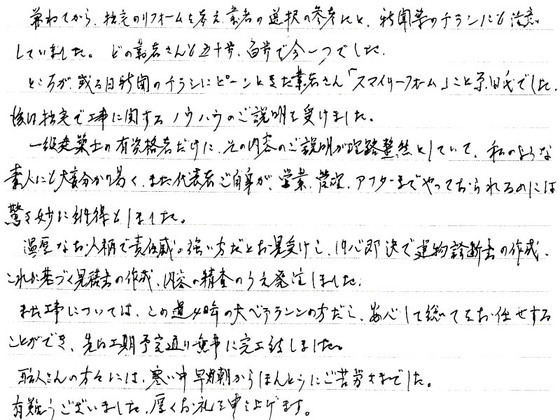 兼ねてから、拙宅のリフォームを考え、業者の選択の参考にと、新聞等のチラシにも注意
していました。どの業者さんも五十歩、百歩で今一つでした。
ところが或る日新聞のチラシにピーンときた業者さん「スマイリーフォーム」こと 氏でした。
後日拙宅で工事に関するノウハウのご説明を受けました。
一級建築士の有資格者だけに、その内容のご説明が理路整然としていて、私のような
素人にも大変分かり易く、また代表者ご自身が、営業、管理、アフターまでやっておられるのには
驚き妙に納得もしました。
温厚なお人柄で責任感の強い方だとお見受けし、内心即決で建物診断書の作成、
これに基づく見積書の作成、内容の精査のうえ発注しました。
本工事については、この道 の大ベテランの方だし、安心して総てをお任せする
ことができ、先の工期予定通り無事に完工致しました。
職人さんの方々には、寒い中早朝からほんとうにご苦労さまでした。
有難うございました。厚くお礼を申し上げます。